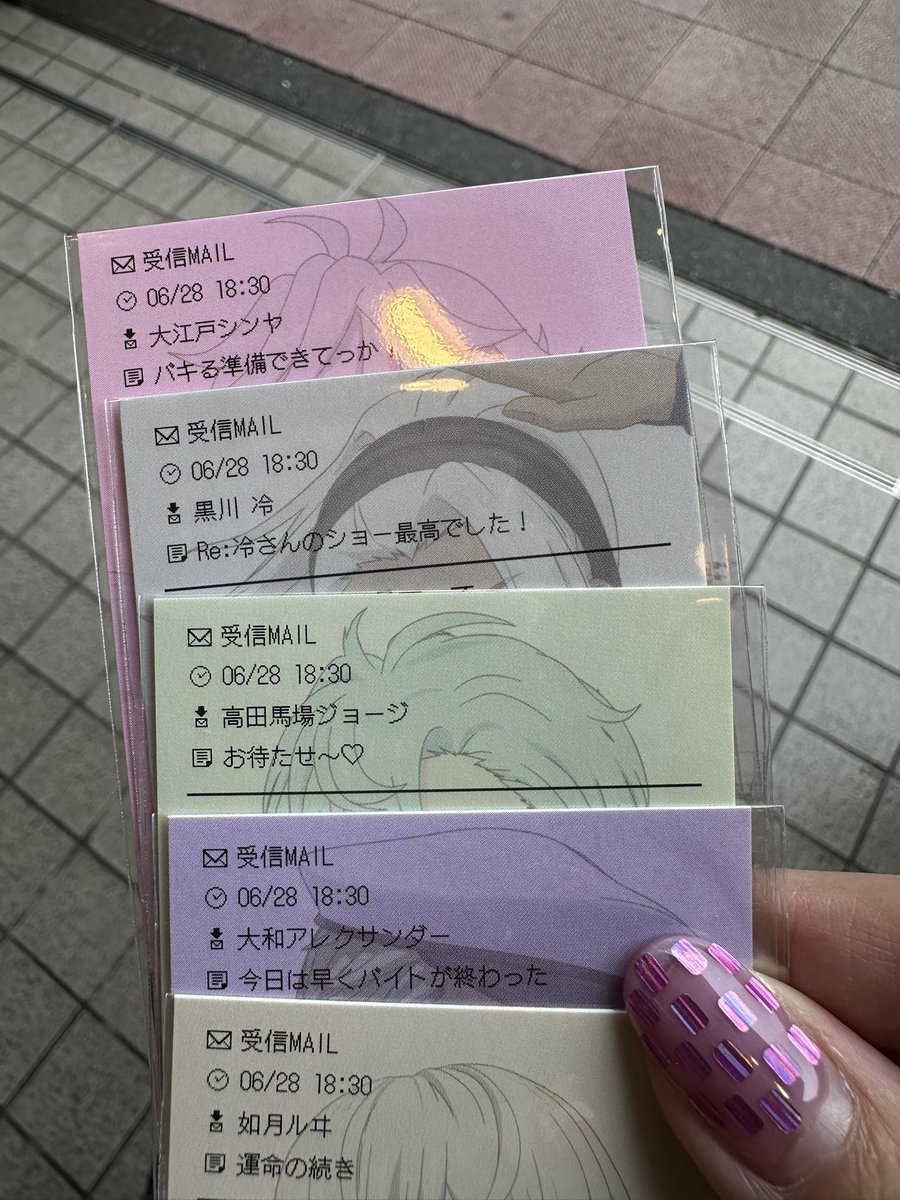 受信MAIL
06/28 18:30
大江戸シンヤ
バキる準備できてっか！
受信MAIL
06/28 18:30
黒川 冷
Re:冷さんのショー最高でした！
受信MAIL
06/28 18:30
高田馬場ジョージ
お待たせ～♡
受信MAIL
06/28 18:30
大和アレクサンダー
今日は早くバイトが終わった
受信MAIL
06/28 18:30
如月ルヰ
運命の続き